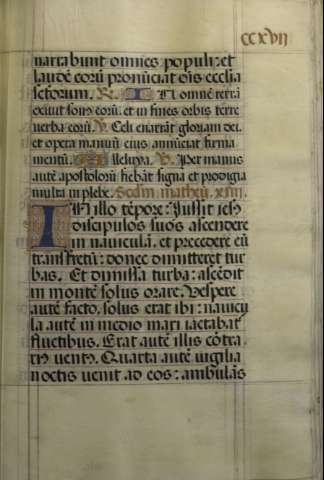 ccxvii
narrabunt omnes populi: et
laudē eorū pronūciat oīs ecclīa
sctorum. R. In omnē terrā
exiuit sonꝰ eorū. et in fines orbis terre
verba eorū. V. Celi enarrāt gloriam dei.
et opera manuū eius annūciat firma
mentū. Alleluya. V. Per manus
autē apostolorū fiebāt signa et prodigia
multa in plebe. Scdm̄ matheū. xiiii.
In illo tēpore: Iussit iesꝰ
discipulos suos ascendere
in nauiculā. et precedere eū
trans fretū: donec dimitteret tur
bas. Et dimissa turba: ascēdit
in montē solus orare. Vespere
autē facto, solus erat ibi: nauicu
la autē in medio mari iactabat̄
fluctibus. Erat autē illis cōtra
riꝰ ventꝰ. Quarta autē vigilia
noctis venit ad eos: ambulās